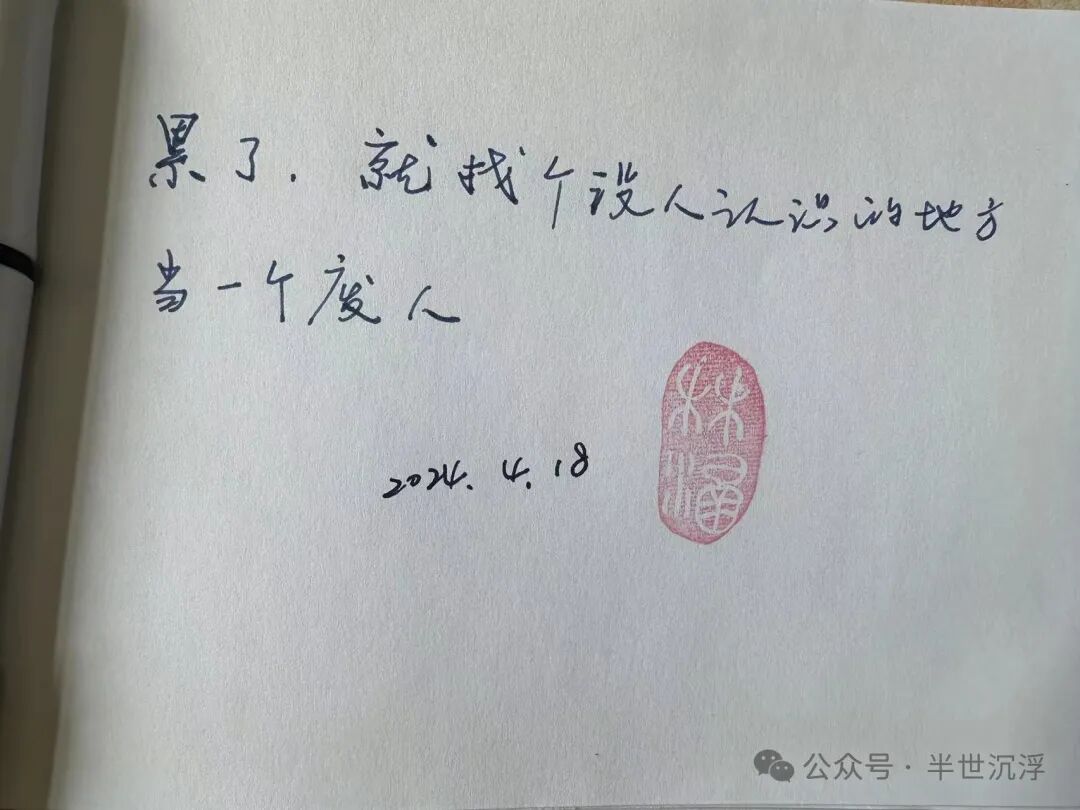 累了.就找个没人认识的地方
当一个废人
2024.4.18
公众号·半世沉浮